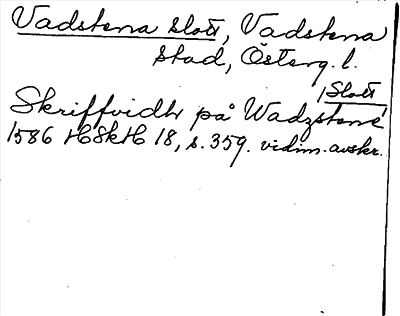 Vadstena slott, Vadstena
Stad, Österg. l.
/Slott
Skriffvidh på Wadzstene
1586 HSkH 18, s. 359. vidim. avskr.